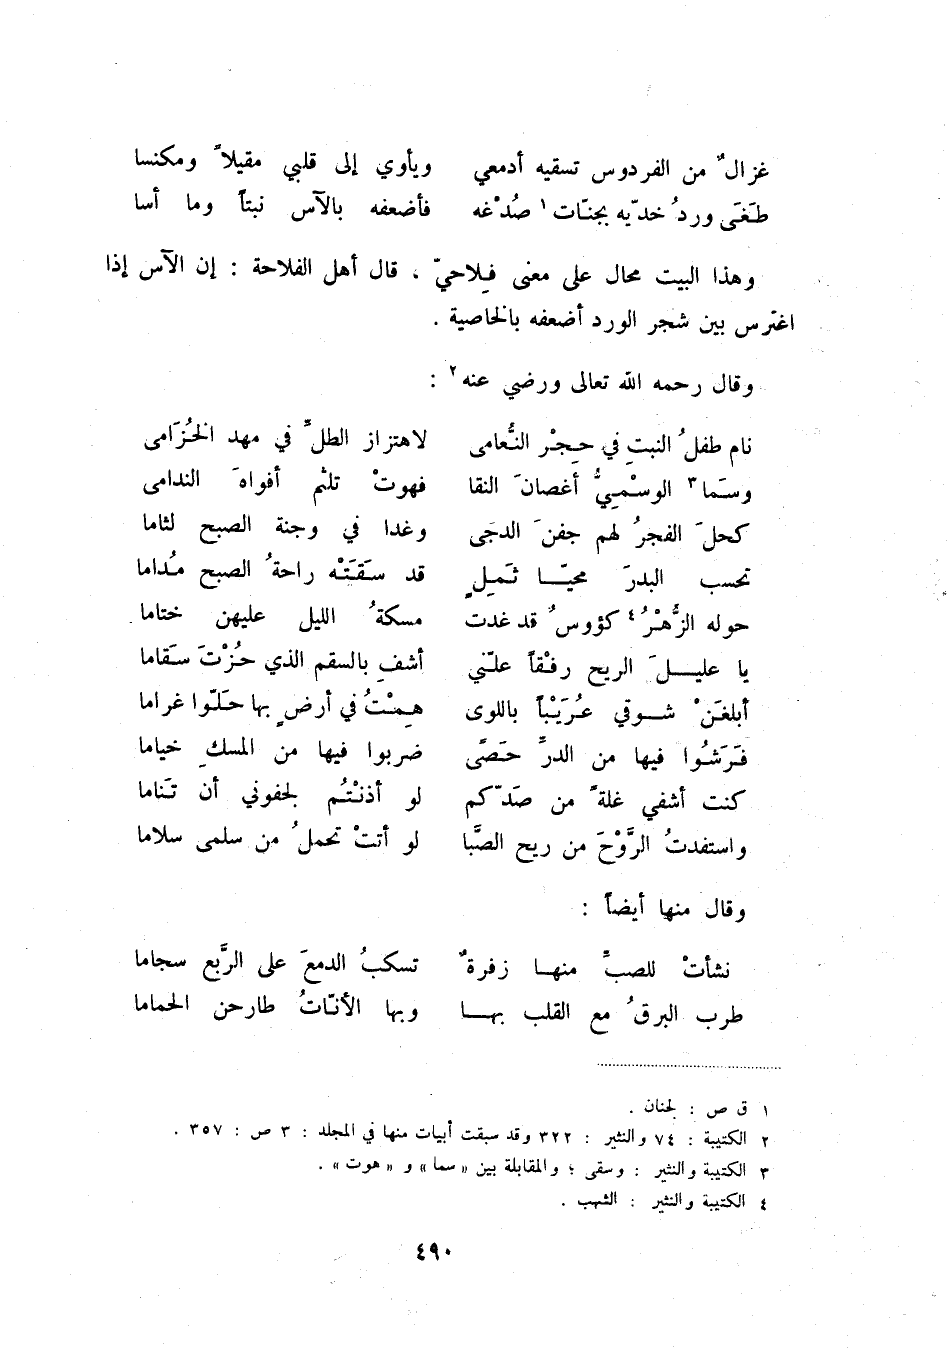 غزالٌ من الفردوس تسقيه أدمعي ويأوي إلى قلبي مقيلاً ومكنسا
طَغَى وردُ خدّيه بجنّات ١ صُدْغه فأضعفه بالآس نبتاً وما أسا
وهذا البيت محال على معنى فِلاحيّ ، قال أهل الفلاحة : إن الآس إذا
اغترس بين شجر الورد أضعفه بالخاصية .
وقال رحمه الله تعالى ورضي عنه ٢ :
نام طفلُ النبتِ في حِجْر النُّعامى لاهتزاز الطلِّ في مهد الخُزَامى
وسَما ٣ الوسْمِيُّ أغصانَ النقا فهوتْ تلثم أفواهَ الندامى
كحلَ الفجرُ لهم جفنَ الدجَى وغدا في وجنة الصبح لثاما
تحسب البدرَ محيّا ثَمَلٍ قد سَقَتْه راحةُ الصبح مُداما
حوله الزُّهْرُ ٤ كؤوسٌ قد غدت مسكةُ الليل عليهن ختاما
يا عليلَ الريح رفْقاً علّني أشفِ بالسقم الذي حُزْتَ سَقاما
أبلغَنْ شوقي عُرَيْباً باللوى هِمْتُ في أرضٍ بها حَلّوا غراما
فَرَشُوا فيها من الدرِّ حَصًى ضربوا فيها من المسكِ خياما
كنت أشفي غلةً من صَدّكم لو أذنْتُم لجفوني أن تَناما
واستفدتُ الرَّوْحَ من ريح الصَّبا لو أتتْ تحملُ من سلمى سلاما
وقال منها أيضاً :
نشأتْ للصبِّ منها زفرةٌ تسكبُ الدمعَ على الرَّبع سجاما
طرب البرقُ مع القلب بها وبها الأنّاتُ طارحن الحماما
١ ق ص : لجنان .
٢ الكتيبة : ٧٤ والنثير : ٣٢٢ وقد سبقت أبيات منها في المجلد : ٣ ص : ٣٥٧ .
٣ الكتيبة والنثير : وسقى ؛ والمقابلة بين «سما» و «هوت» .
٤ الكتيبة والنثير : الشهب .
٤٩٠